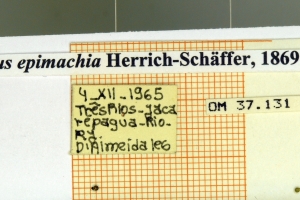 us epimachia Herrich-Schäffer, 1869
4_XII_1965
Três Rios-Jaca
repagua-Rio-
R.J.
D'Almeida leg
OM 37.131